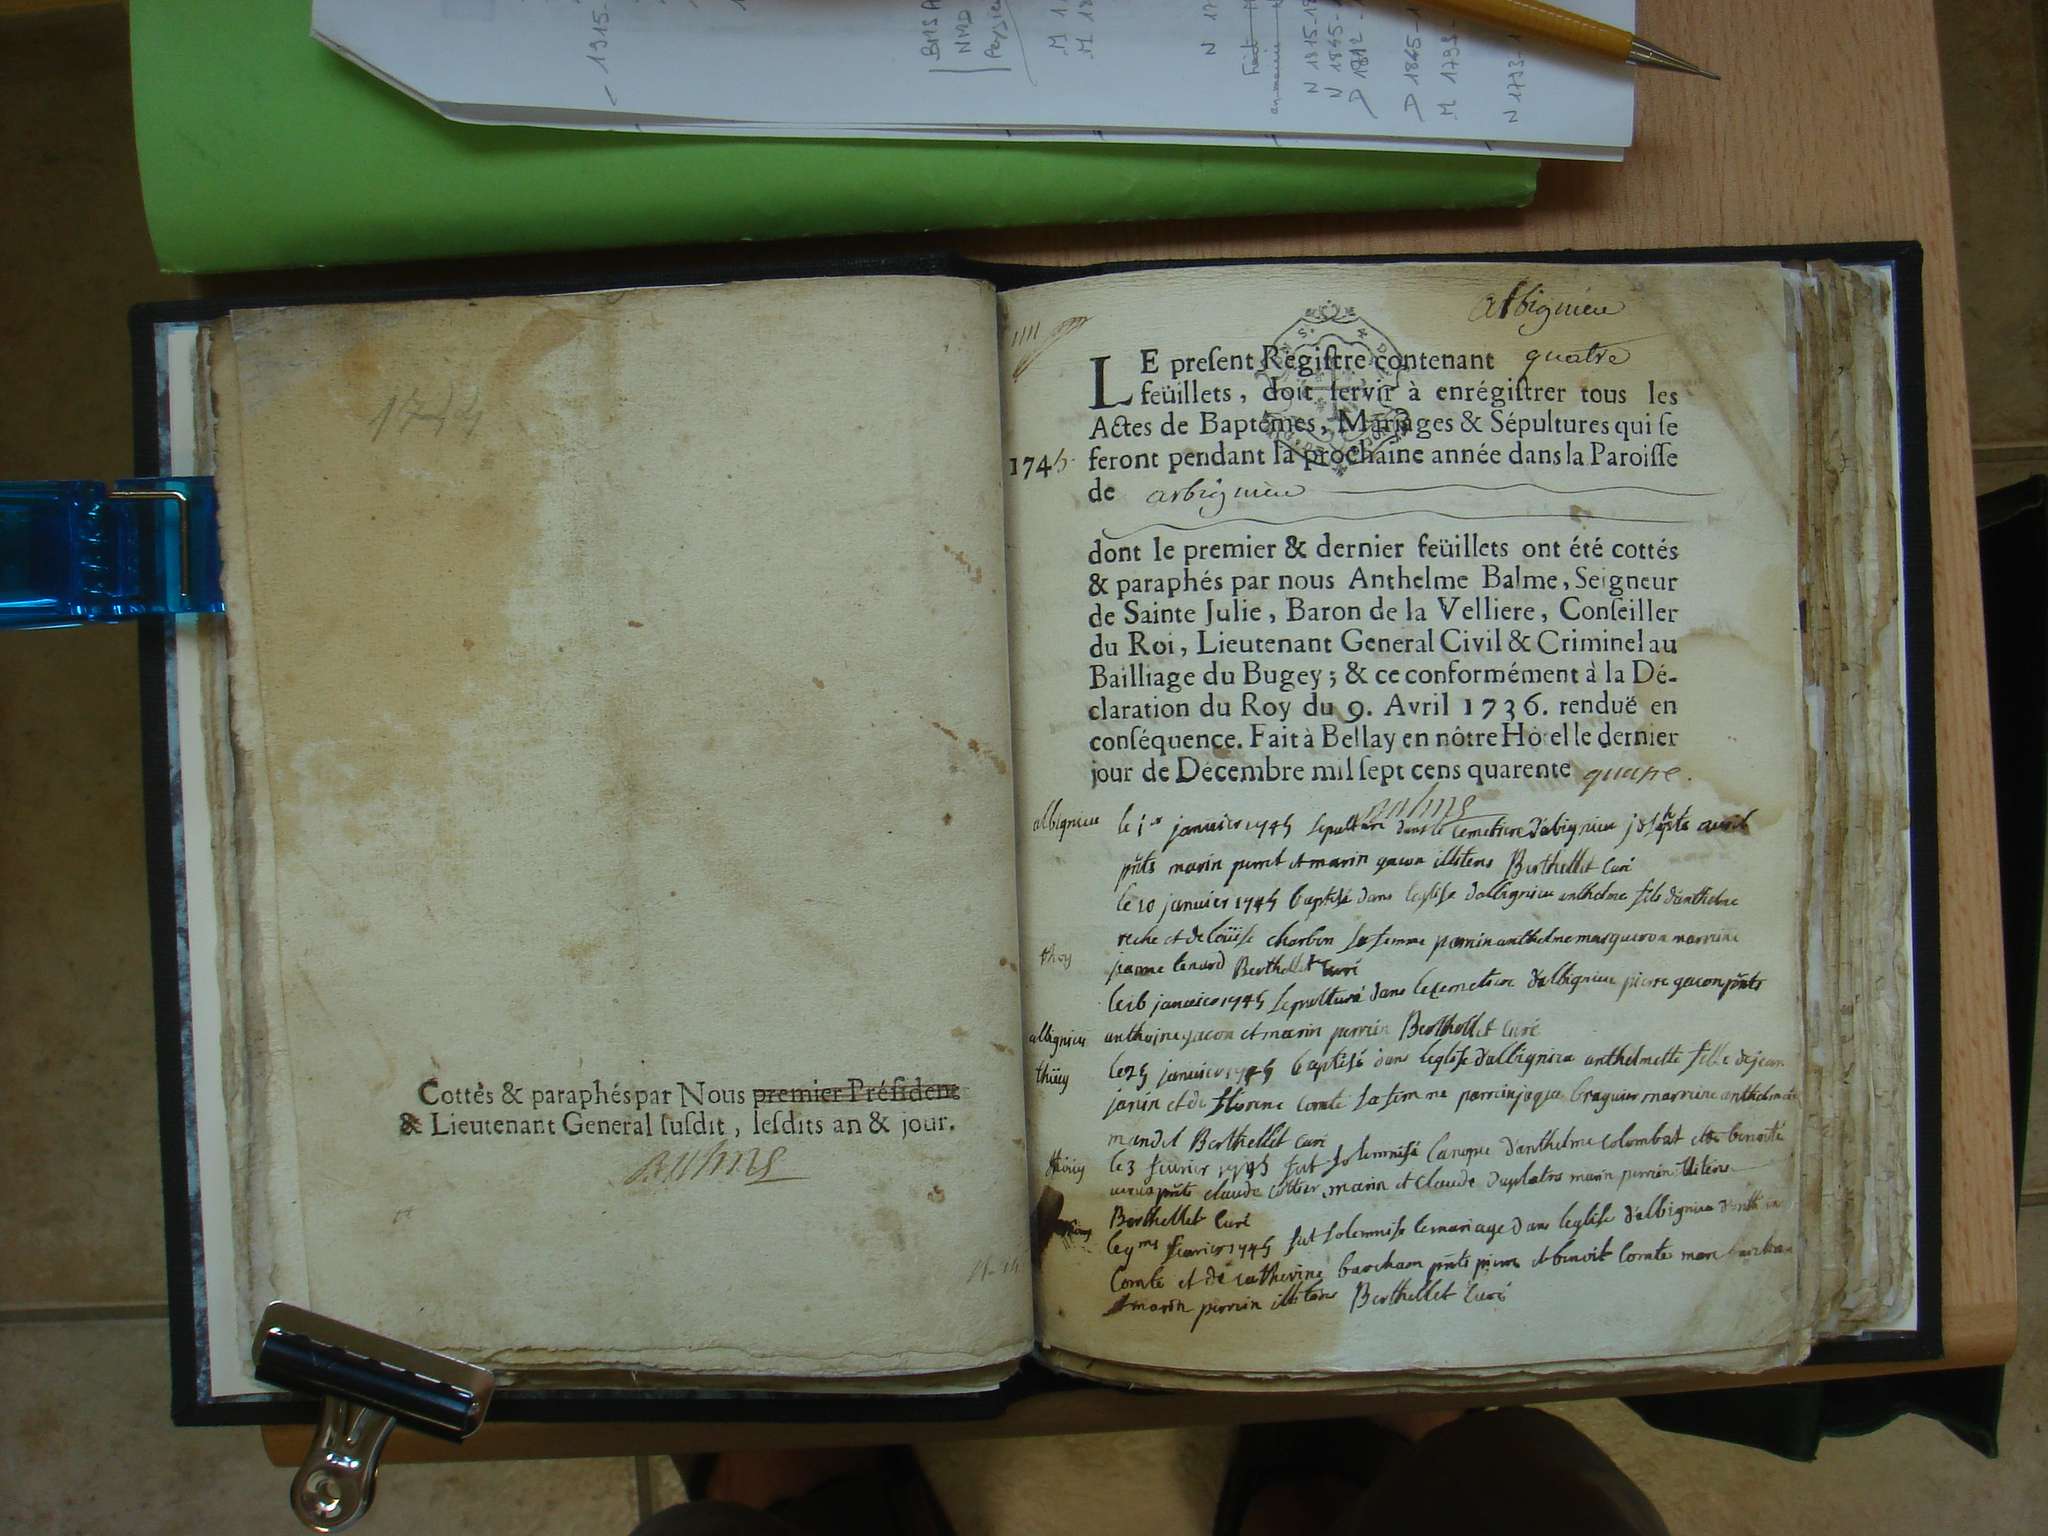 1915-
BMS
NMD
N 17
N 1815-18
N 1845-
D 1812-
D 1845-1
M 1793-
N 1773-1
1744
Cottés & paraphés par Nous premier Président
& Lieutenant General ſuſdit, leſdits an & jour.
Balme
albignieu
LE preſent Regiſtre contenant quatre
feüillets, doit ſervir à enrégiſtrer tous les
Actes de Baptêmes, Mariages & Sépultures qui ſe
1745 feront pendant la prochaine année dans la Paroiſſe
de arbignieu
dont le premier & dernier feüillets ont été cottés
& paraphés par nous Anthelme Balme, Seigneur
de Sainte Julie, Baron de la Velliere, Conſeiller
du Roi, Lieutenant General Civil & Criminel au
Bailliage du Bugey; & ce conformément à la Dé-
claration du Roy du 9. Avril 1736. renduë en
conſéquence. Fait à Bellay en nôtre Hôtel le dernier
jour de Décembre mil ſept cens quarente quatre.
Balme
albignieu le 1er janvier 1745 sepulturé dans le cemetiere d'albignieu
pnts marin perret et marin gacon illiteres Berthellet Curé
le 10 janvier 1745 baptisé dans leglise dalbignieu anthelme fils danthelme
reche et de loüise charbon sa femme parrin anthelme marrine
thoy jeanne tenard Berthellet Curé
le 16 janvier 1745 sepulturé dans le cemetiere dalbignieu pierre gacon pnts
albignieu anthoine gacon et marin perrin Berthellet Curé
thüey le 25 janvier 1745 baptisé dans leglise dalbignieu anthelmette fille de jean
janin et de florine Comte sa femme parrin braguier marrine anthelmette
mandel Berthellet Curé
thüey le 3 fevrier 1745 fut solemnisé danthelme colombat et de benoite
pnts claude cottier, marin et claude duplatre marin perrin illitere
Berthellet Curé
le 9me fevrier 1745 fut solemnise le mariage dans leglise dalbignieu
Comte et de catherine barcham pnts pierre et benoit Comte marc
et marin perrin illiteres Berthellet Curé